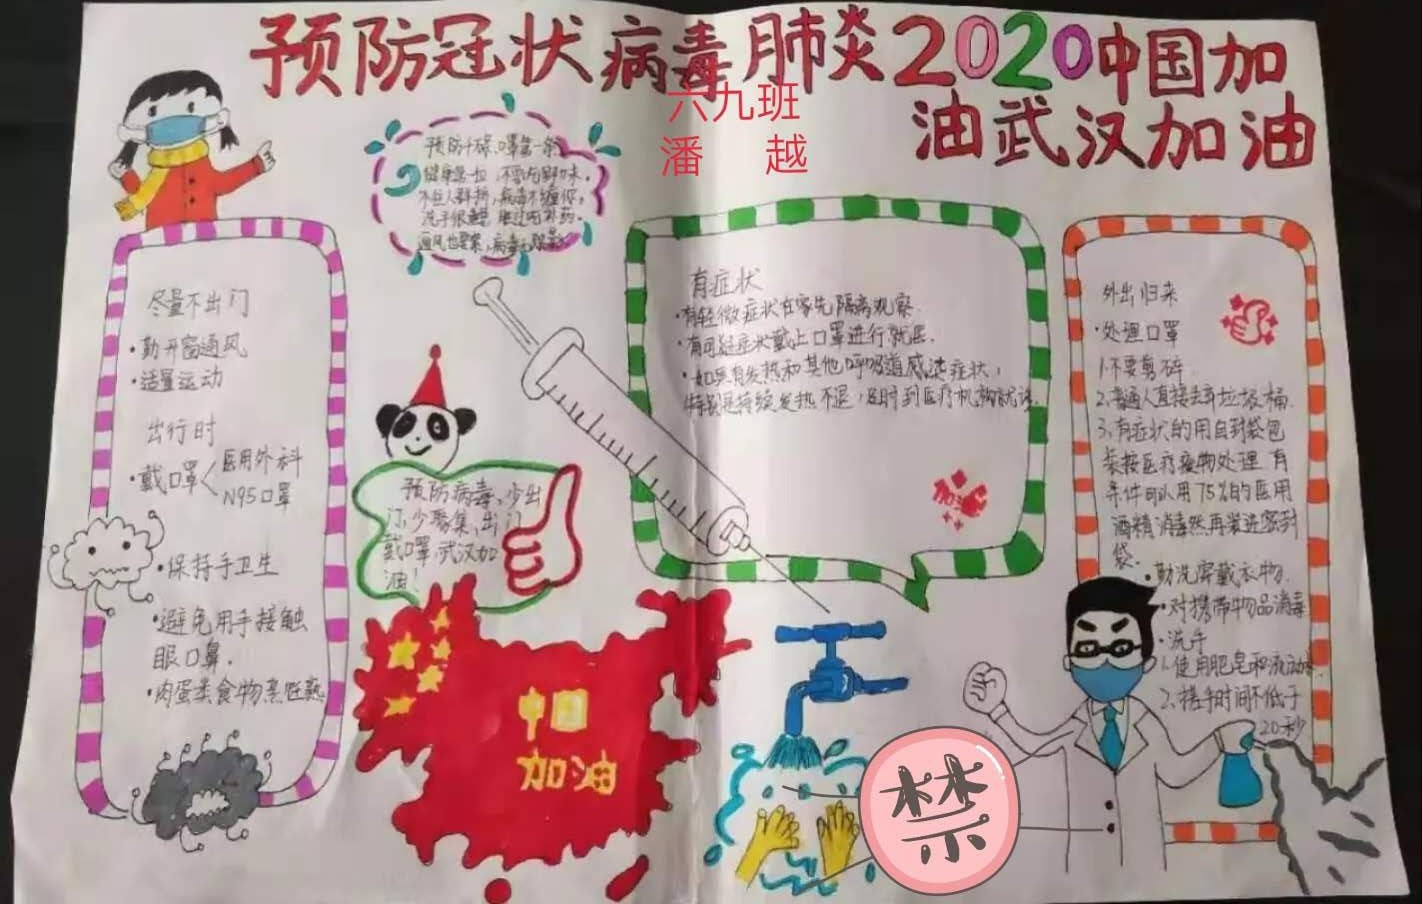 预防冠状病毒肺炎2020中国加
油武汉加油
六九班
潘 越
健康第一位,不要吃野味。
不往人群挤,病毒不缠你,
洗手很重要,胜过吃补药。
尽量不出门
·勤开窗通风
·适量运动
出行时
·戴口罩
医用外科
N95口罩
·保持手卫生
·避免用手接触
眼口鼻.
·肉蛋类食物烹饪熟
预防病毒、少出
门,少聚集,出门
戴口罩,武汉加
油!
中国
加油
有症状
·有轻微症状在家先隔离观察.
·有可疑症状戴上口罩进行就医.
·如果有发热和其他呼吸道感染症状,
特别是持续发热不退,及时到医疗机构就诊.
加油
外出归来
·处理口罩
1.不要剪碎
2.普通人直接丢弃垃圾桶.
3.有症状的用自封袋包
装按医疗废物处理.有
条件可以用75%的医用
酒精消毒然再装进密封
袋.
·勤洗穿戴衣物.
·对携带物品消毒
·洗手
1.使用肥皂和流动水
2.搓手时间不低于
20秒
禁